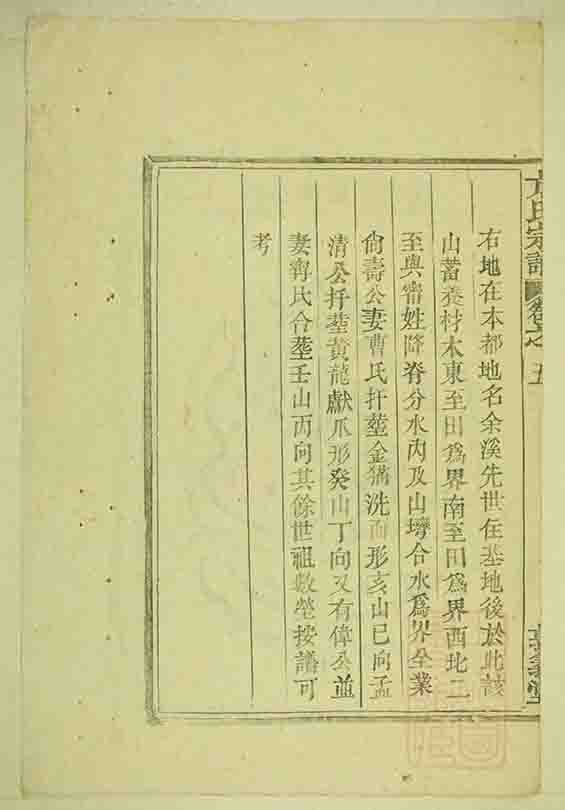 右地在本都地名余溪先世住基地後於此該
山蓄養材木東至田爲界南至田爲界西北二
至與甯姓降脊分水內及山塆合水爲界全業
尙壽公妻曹氏扦塟金猫洗面形亥山巳向孟
清公扦塟黃龍獻爪形癸山丁向又有偉公並
妻甯氏合塟壬山丙向其餘世祖數塋按譜可
考
氏宗譜
五